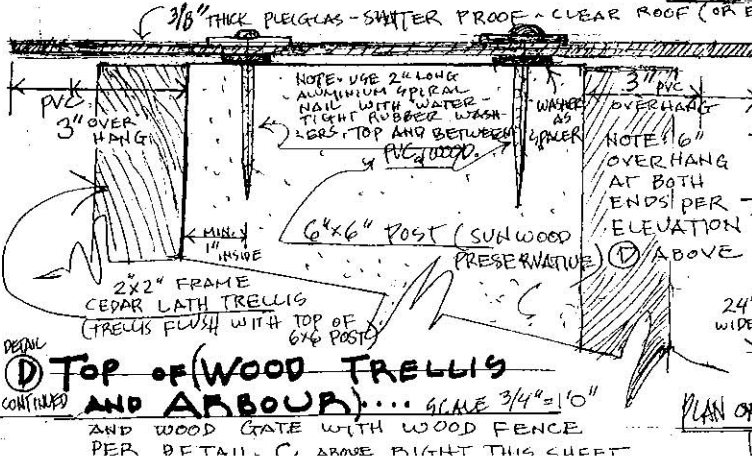 3/8" THICK PLEIGLAS - SHATTER PROOF - CLEAR ROOF (OR E
PVC
3" OVER
HANG
NOTE: USE 2" LONG
ALUMINIUM SPIRAL
NAIL WITH WATER-
TIGHT RUBBER WASH-
ERS, TOP AND BETWEEN
PVC & WOOD.
WASHER
AS
SPACER
3" PVC
OVERHANG
NOTE: 6"
OVERHANG
AT BOTH
ENDS PER
ELEVATION
D ABOVE
MIN.
1"
INSIDE
6"x6" POST (SUNWOOD
PRESERVATIVE)
2"x2" FRAME
CEDAR LATH TRELLIS
(TRELLIS FLUSH WITH TOP OF
6x6 POST)
24"
WIDE
DETAIL
D TOP OF (WOOD TRELLIS
CONTINUED AND ARBOUR).... SCALE 3/4"=1'0"
AND WOOD GATE WITH WOOD FENCE
PER DETAIL C, ABOVE RIGHT THIS SHEET
PLAN OF